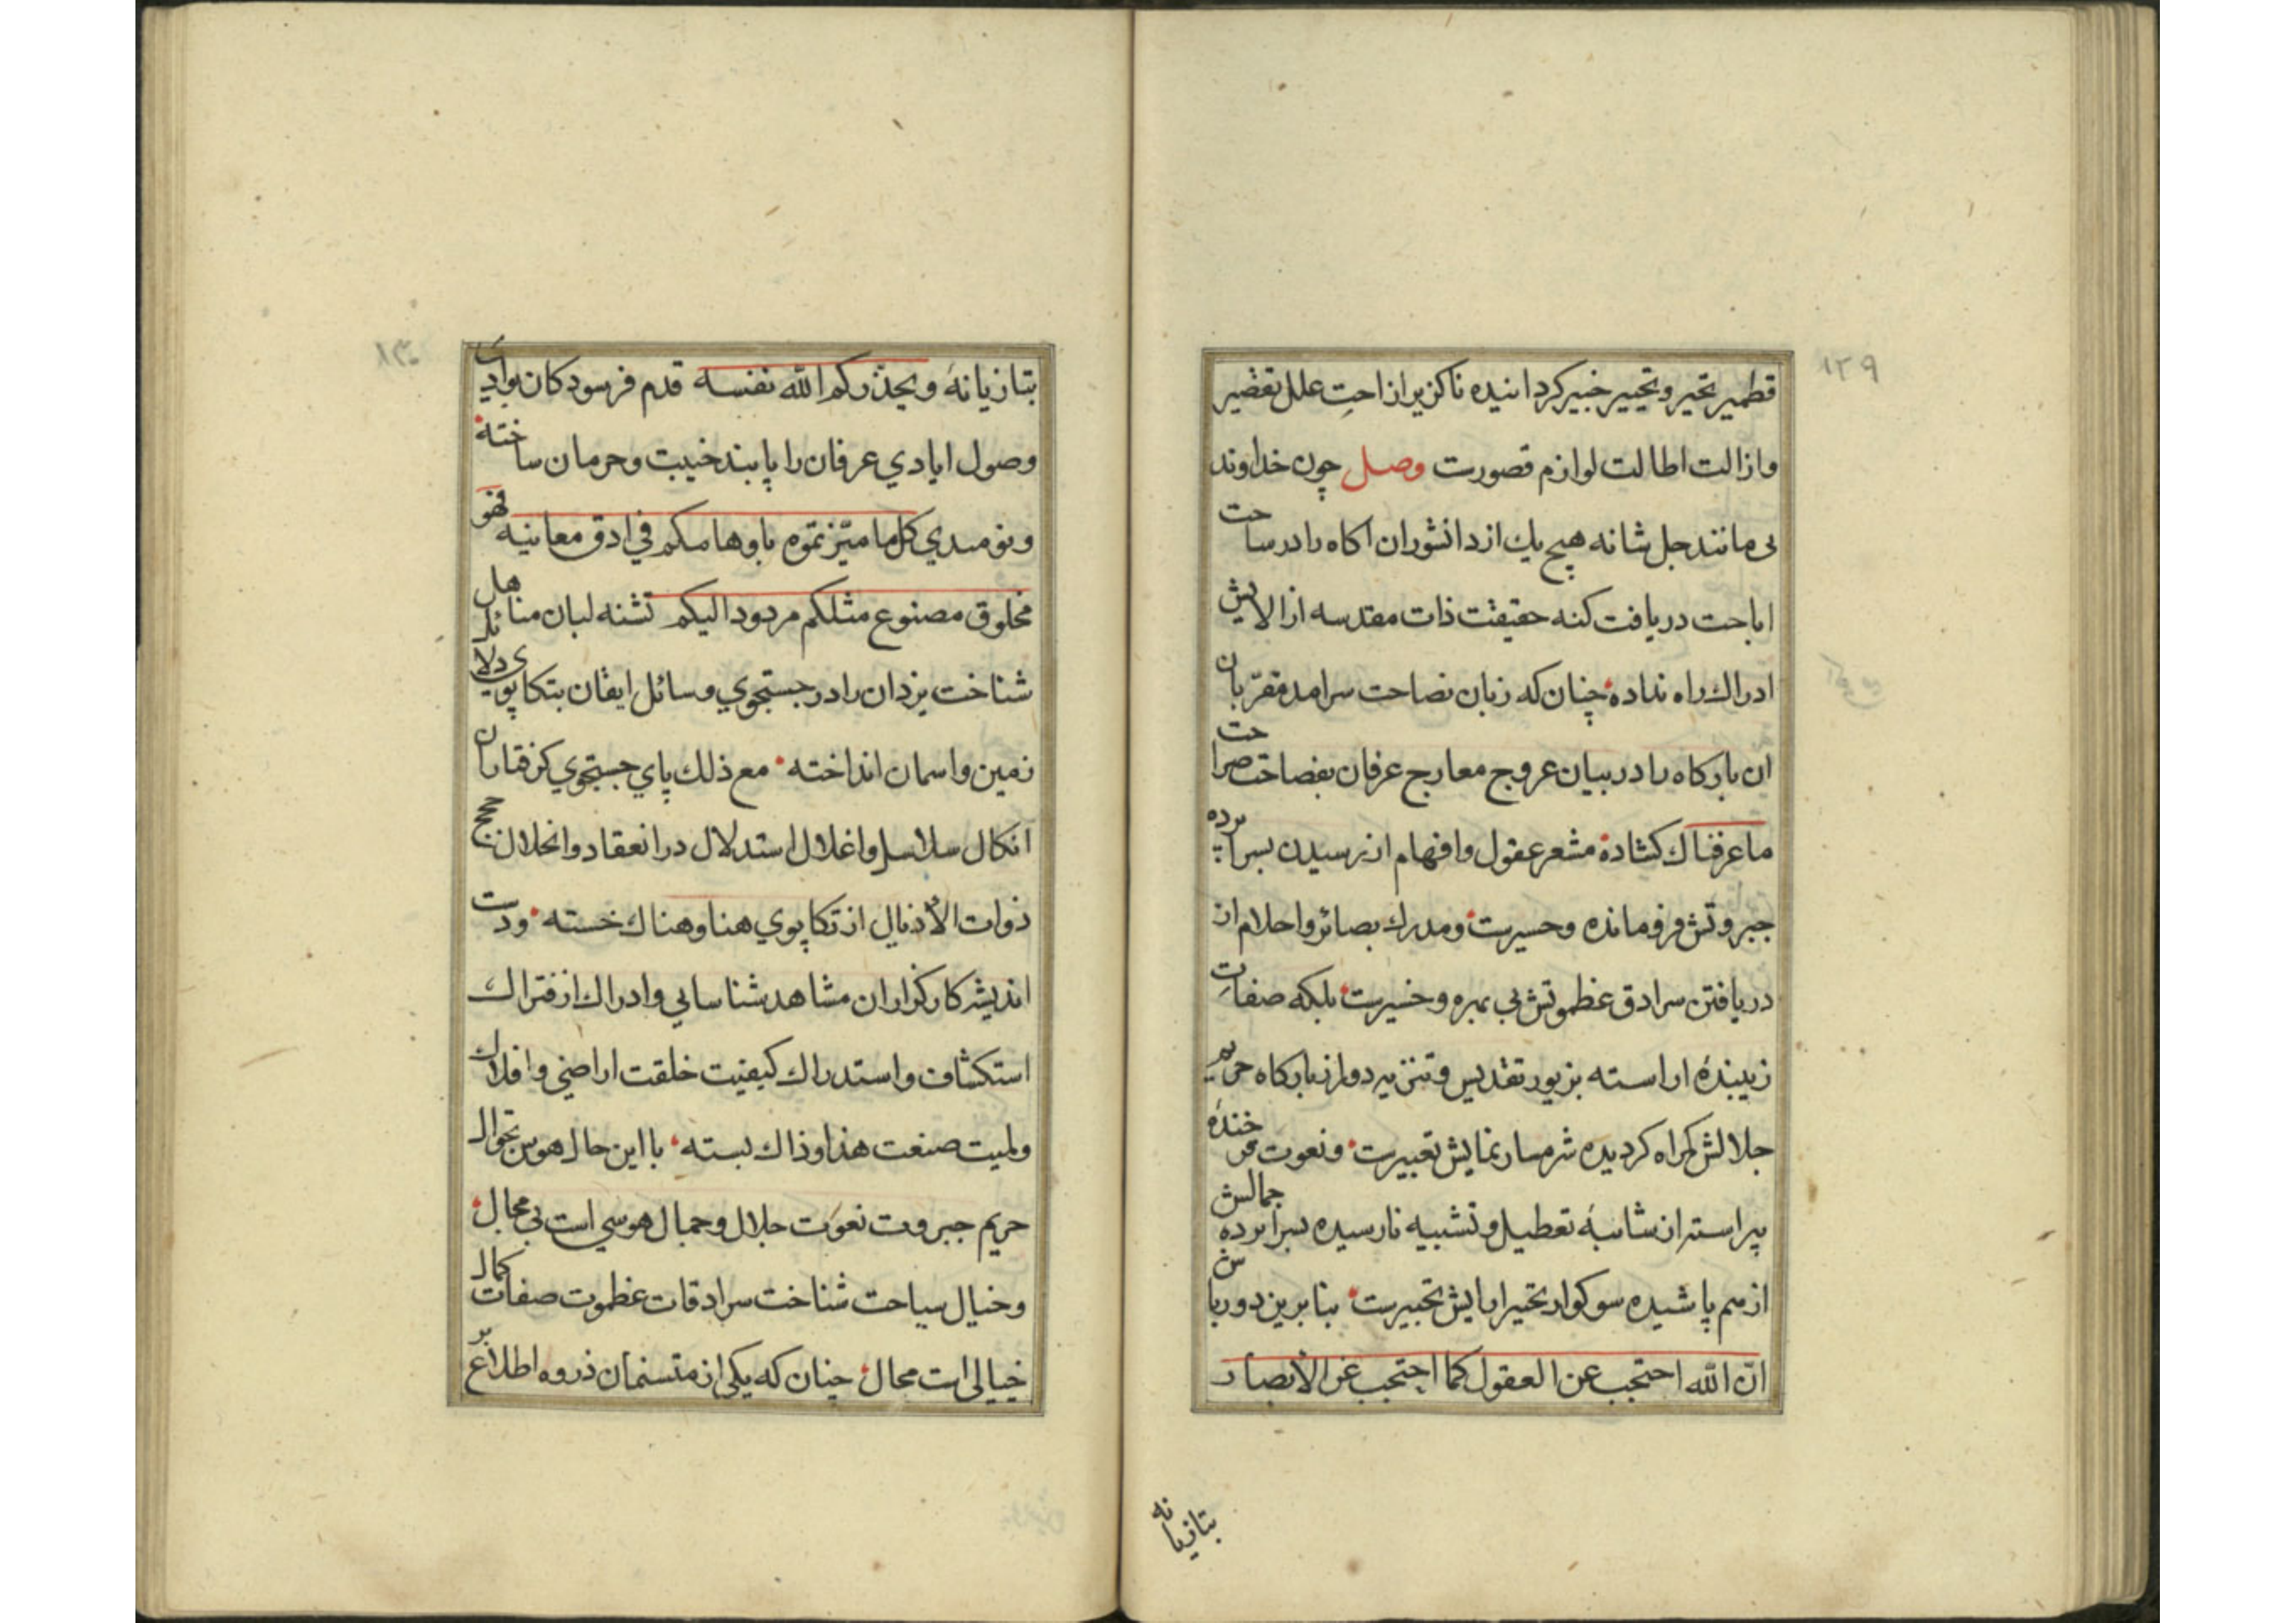 ۱۲۹
قطمیر تحیر و تحییر خبیر کردانیده ناکزیر ازاحتِ علل تقصیر
وازالت اطالت لوازم قصورت وصل چون خداوند
بی مانند جل شانه هیچ یك از دانشوران اکاه را در ساحت
اباحت دریافت کنه حقیقت ذات مقدسه از الایش
ادراك راه نداده چنان که زبان نصاحت سرامد مقرّبان
ان بارکاه را در بیان عروج معارج عرفان بفصاحت صراحت
ما عرفناك کشاده مشعر عقول وافهام از رسیدن بسراپرده
جبروتش فرومانده وحسیرست ومدرك بصائر واحلام از
دریافتن سرادق عظموتش بی بهره وخسیرست بلکه صفاتِ
زیبندهٔ اراسته بزیور تقدیس وتنزیه دور از بارکاه حریم
جلالش کمراه کردیده شرمسار نمایش تعبیرست ونعوت فرخندهٔ
پیراسته از شائبهٔ تعطیل وتشبیه نارسیده بسراپرده جمالش
از هم پاشیده سوکوار تحیر ارایش تحبیرست بنابرین دورباش
انّ الله احتجب عن العقول کما احتجب عن الأبصار
بتازیانه
۱۳۰
بتازیانهٔ ویحذّرکم الله نفسه قدم فرسودکان بوادی
وصول ایادي عرفان را پابند خیبت وحرمان ساخته
ونومیدي کل ما میّزتموه باوهامکم في ادق معانیه فهو
مخلوق مصنوع مثلکم مردود الیکم تشنه لبان مناهل
شناخت یزدان را در جستجوي وسائل ایقان بتکاپوي دلائل
زمین واسمان انداخته مع ذلك پاي جستجوي کرفتاران
انکال سلاسل واغلال استدلال در انعقاد وانحلال حجج
ذوات الأذیال از تکاپوي هنا وهناك خسته ودست
اندیشه کارکزاران مشاهد شناسایي وادراك از فتراك
استکشاف واستدراك کیفیت خلقت اراضي وافلاك
ولمیت صنعت هذا وذاك بسته با این حال هوس تجوال
حریم جبروت نعوت جلال وجمال هوسي است بی مجال
وخیال سیاحت شناخت سرادقات عظموت صفات کمال
خیالی است محال چنان که یکی از متسنمان ذروه اطلاع بر